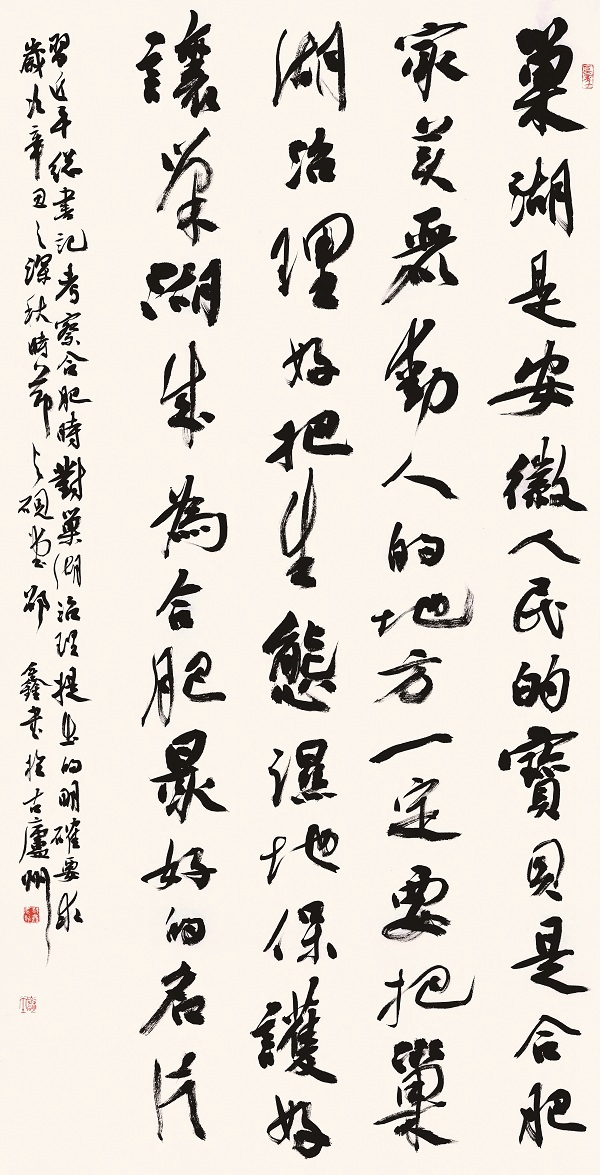 巢湖是安徽人民的寶貝是合肥
家美麗動人的地方一定要把巢
湖治理好把生態濕地保護好
讓巢湖成為合肥最好的名片
習近平總書記考察合肥時對巢湖治理提出的明確要求
歲在辛丑之深秋時節 硯堂 鄒鑫書於古廬州